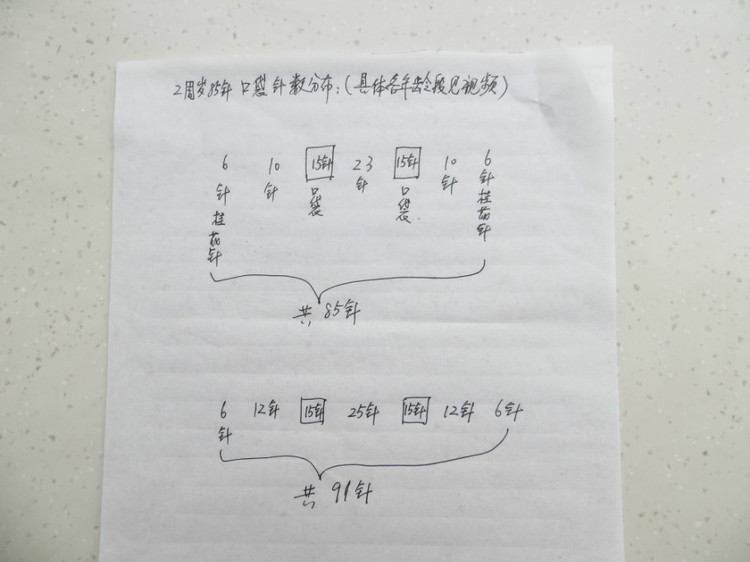 2周岁85针口袋针数分布:(具体各年龄段见视频)
6针桂花针 10针 15针口袋 23针 15针口袋 10针 6针桂花针
共 85针
6针 12针 15针 25针 15针 12针 6针
共 91针